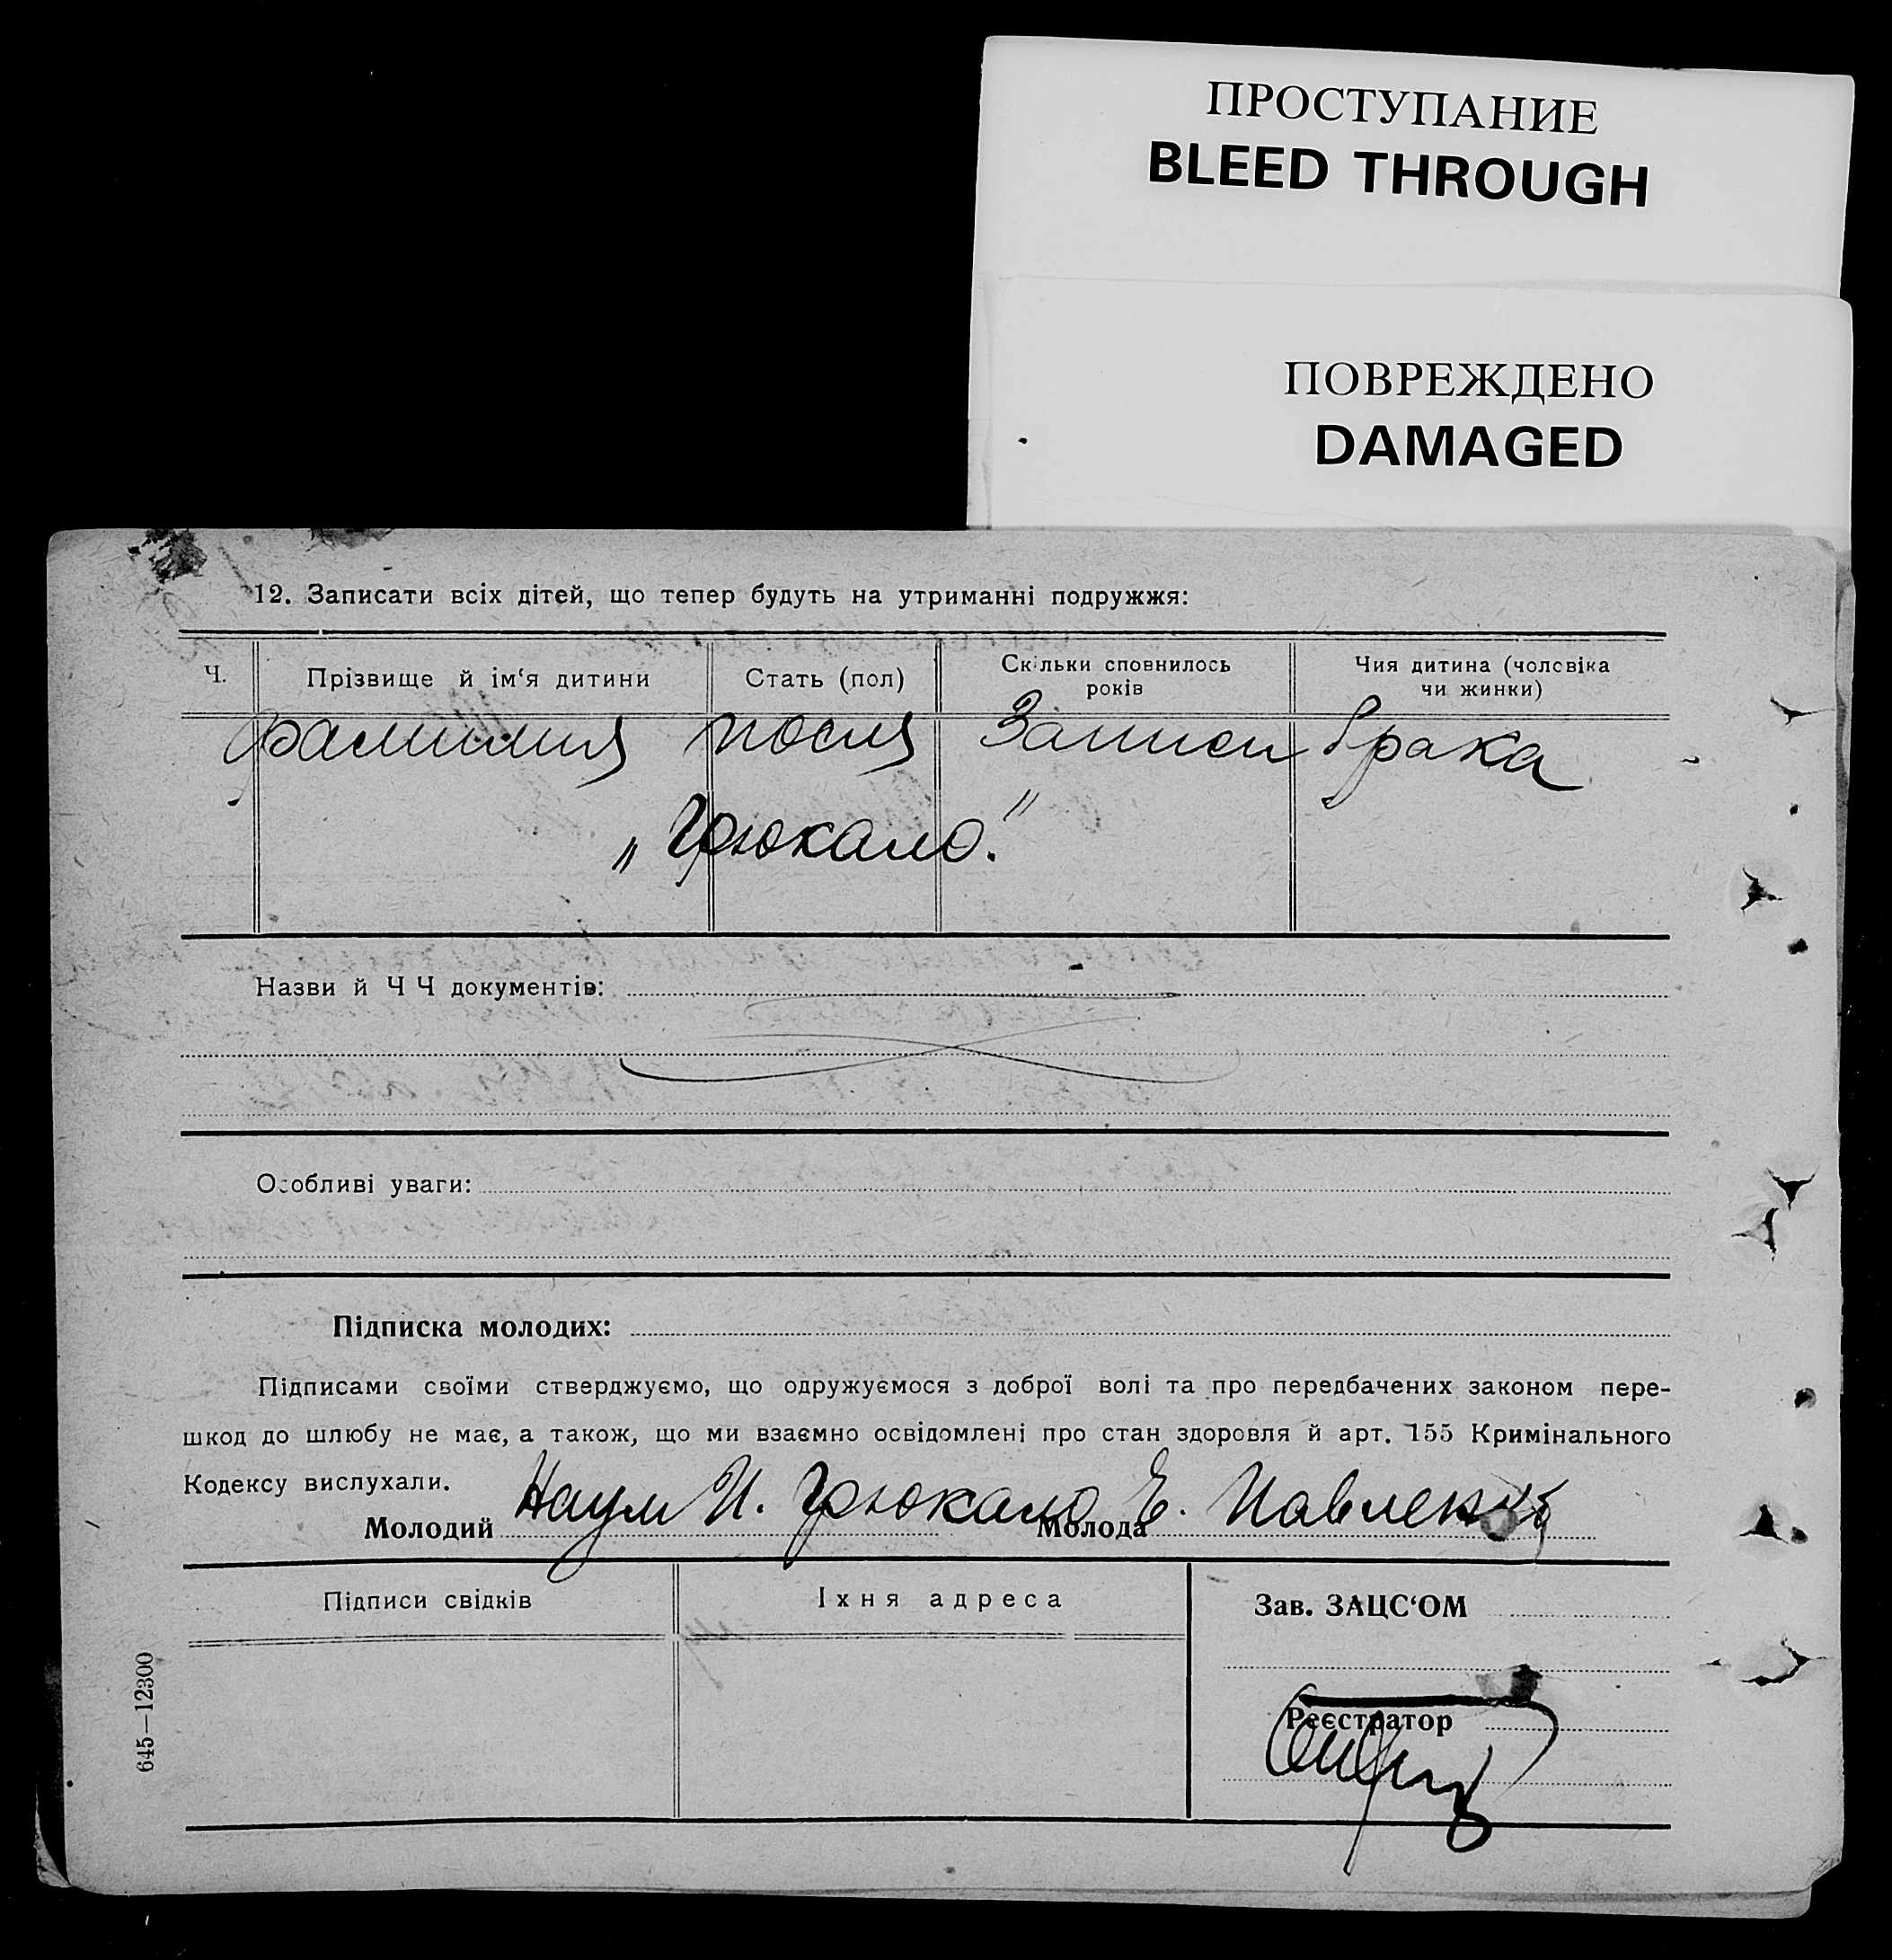 ПРОСТУПАНИЕ
BLEED THROUGH
ПОВРЕЖДЕНО
DAMAGED
12. Записати всіх дітей, що тепер будуть на утриманні подружжя:
Ч. Прізвище й ім‘я дитини Стать (пол) Скільки сповнилось років Чия дитина (чоловіка чи жинки)
Фамилия посля Записи брака
„Грюкало."
Назви й Ч Ч документів:
Особливі уваги:
Підписка молодих:
Підписами своїми стверджуємо, що одружуємося з доброї волі та про передбачених законом пере-
шкод до шлюбу не має, а також, що ми взаємно освідомлені про стан здоровля й арт. 155 Кримінального
Кодексу вислухали.
Молодий Наум И. Грюкало Молода Е. Павленко
Підписи свідків Іхня адреса Зав. ЗАЦС‘ОМ
Реєстратор
645—12300